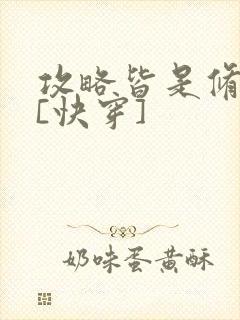 攻略皆是修
[快穿]
奶味蛋黄酥